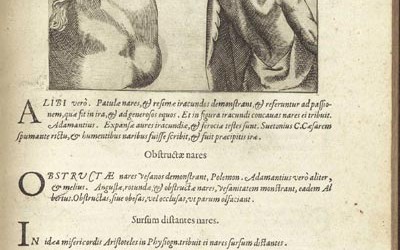 ALIBI verò. Patulæ nares, & resimæ iracundos demonstrant, & referuntur ad passio-
nem, quæ fit in ira, & ad generosos equos. Et in figura iracundi concauas nares ei tribuit.
Adamantius. Expansæ aures iracundiæ, & ferociæ testes sunt. Suetonius C. Cæsarem
spumante rictu, & humentibus naribus fuisse scribit, & fuit præcipitis iræ.
Obstructæ nares
OBSTRVCTÆ nares vesanos demonstrant, Polemon. Adamantius verò aliter,
& melius. Angustæ, rotundæ, & obstructæ nares, vesanitatem monstrant, eadem Al
bertus. Obstructas, siue obesas, vel occlusas, vt parum olfaciant.
Sursum distantes nares.
IN idea misericordis Aristoteles in Physiogn. tribuit ei nares sursum distantes.